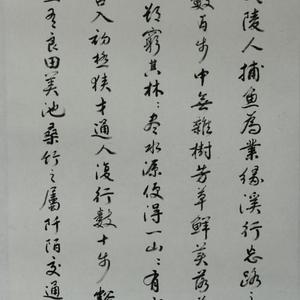 陵人捕魚為業緣溪行忘路之
數百步中無雜樹芳草鮮美落
欲窮其林〻盡水源便得一山〻有
口入初極狹才通人復行數十步豁
有良田美池桑竹之屬阡陌交通